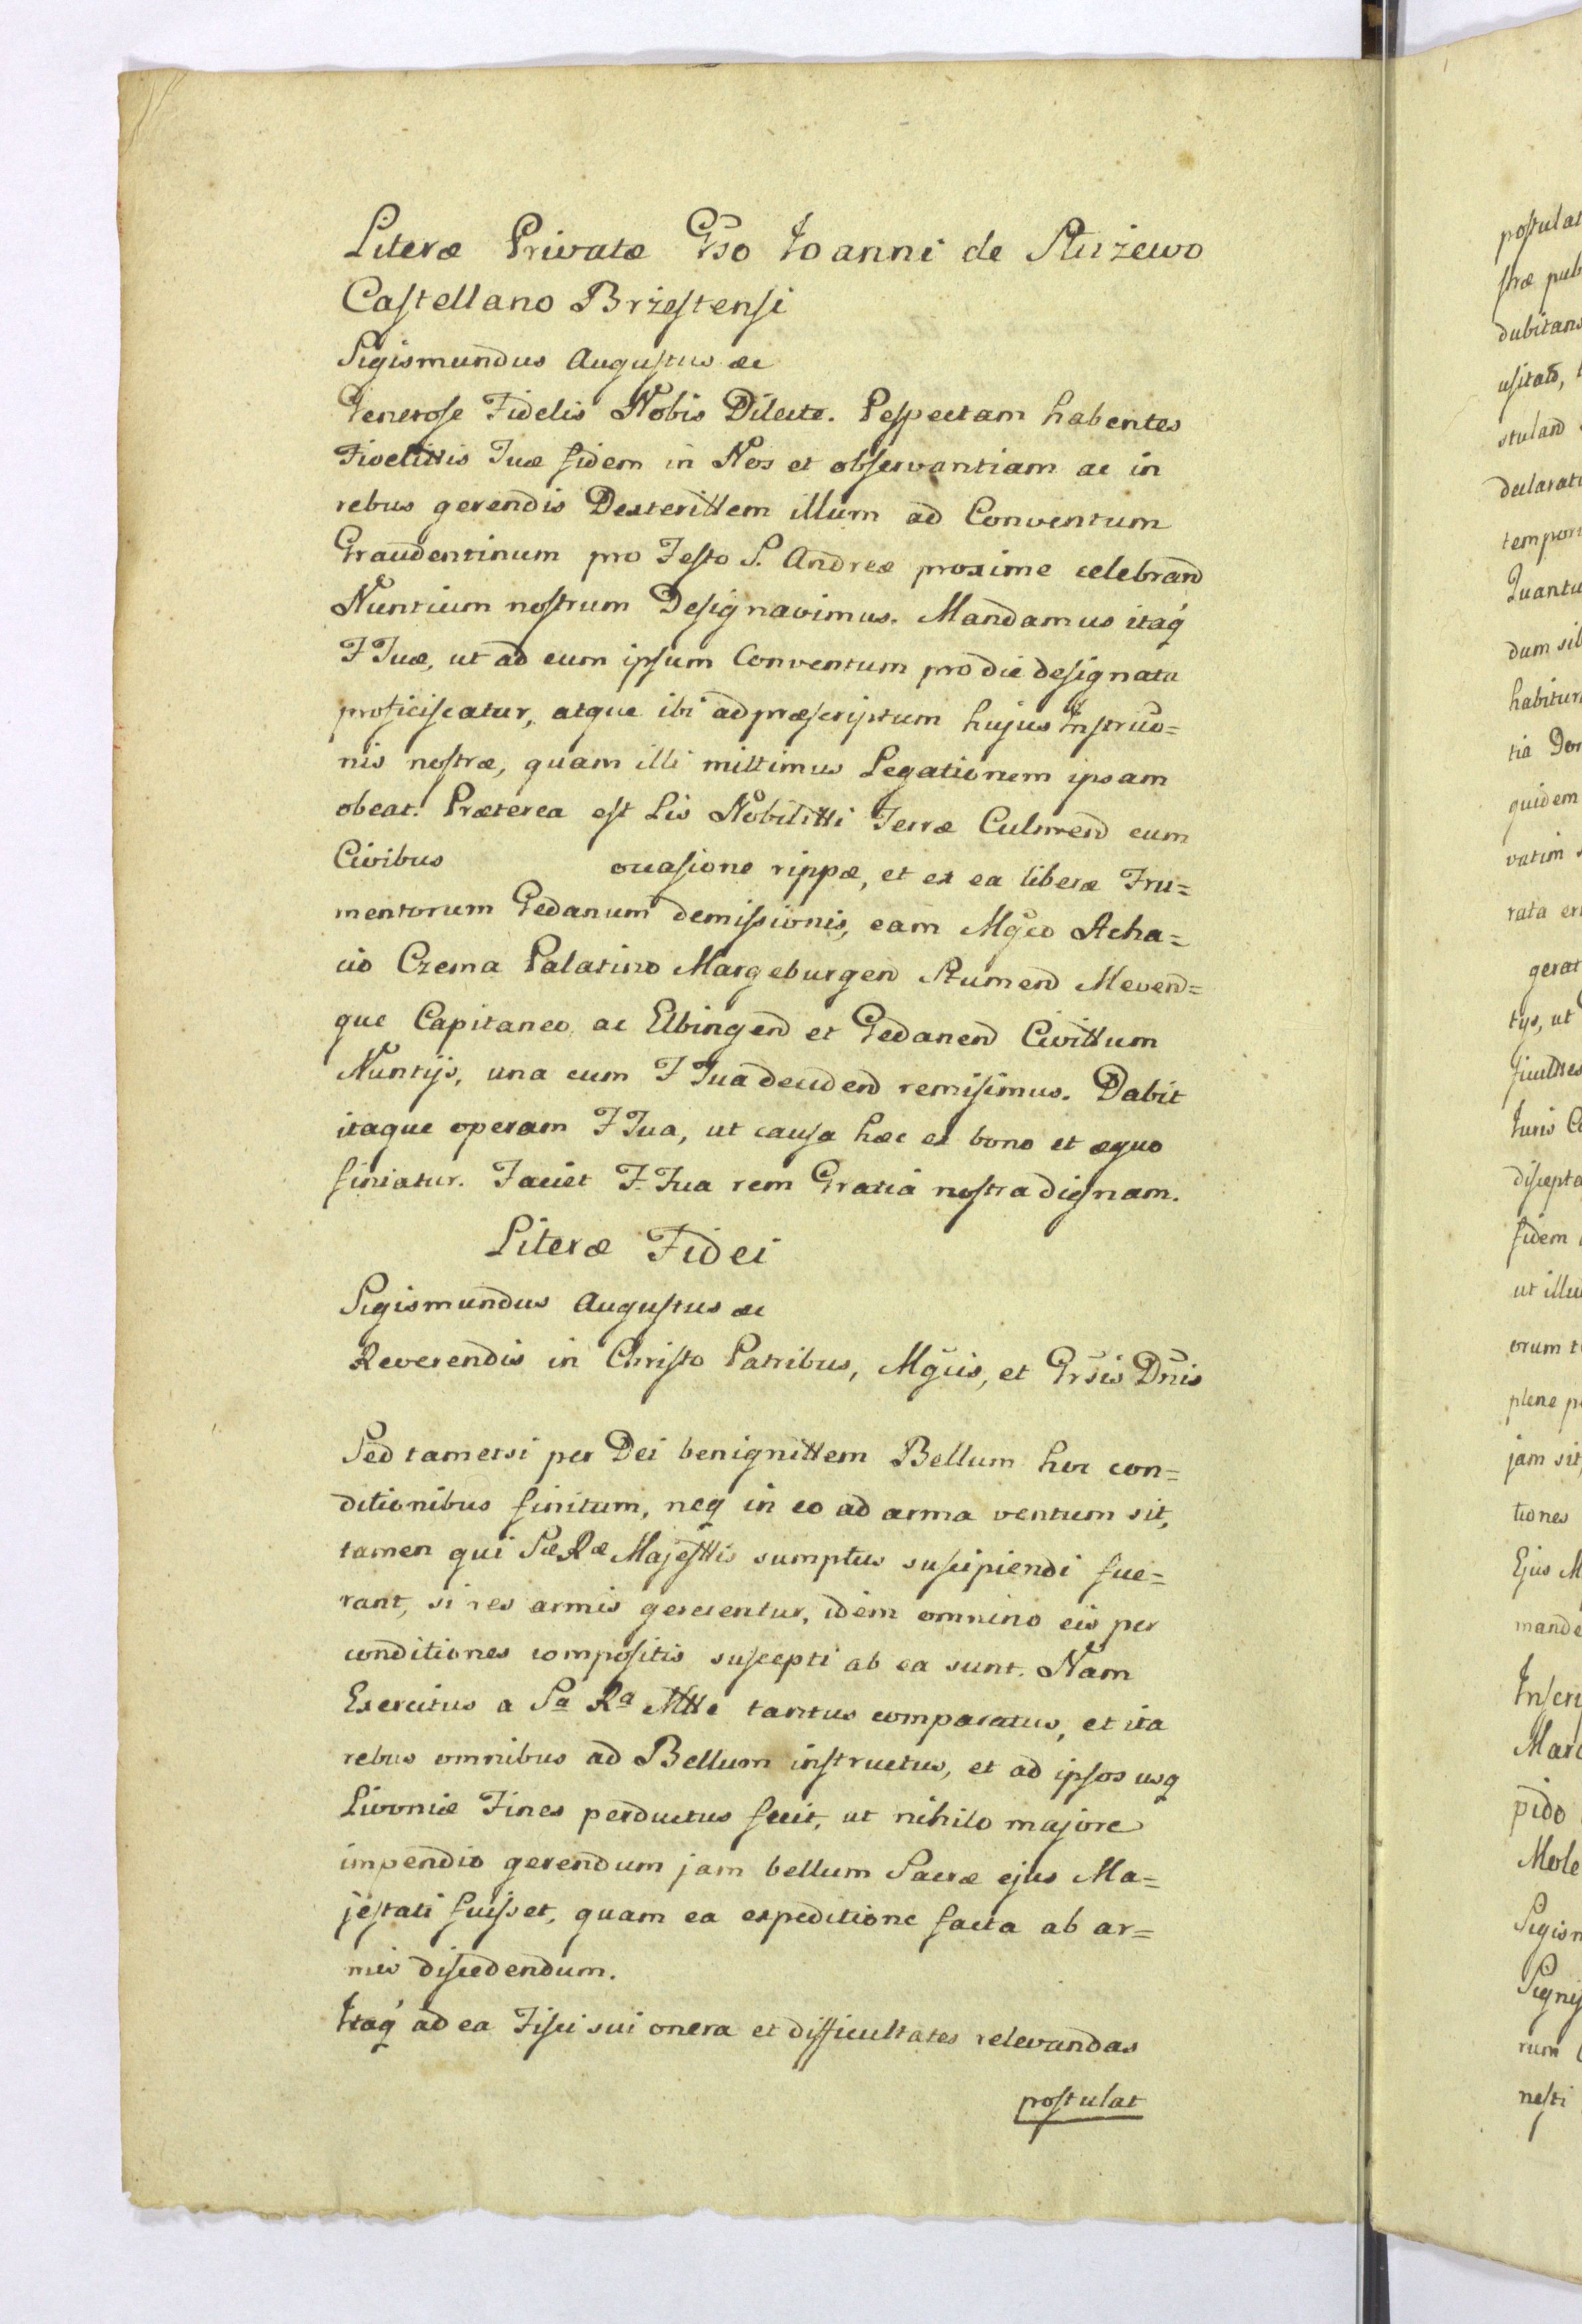 Literæ Privatæ Gso Joanni de Służewo
Castellano Brzestensi
Sigismundus Augustus &c
Generose Fidelis Nobis Dilecte. Pespectam habentes
Fidelittis Tuæ fidem in Nos et observantiam ac in
rebus gerendis Dexterittem illum ad Conventum
Graudentinum pro Festo S. Andreæ proxime celebrand
Nuntium nostrum Designavimus. Mandamus itaq
F Tuæ, ut ad eum ipsum Conventum pro die designata
proficiscatur, atque ibi ad præscriptum hujus Instruo=
nis nostræ, quam illi mittimus Legationem ipsam
obeat. Præterea est Lis Nobilitti Terræ Culmend cum
Civibus occasione rippæ, et ex ea liberæ Fru=
mentorum Gedanum demissionis, eam Mgco Acha=
cio Czema Palatino Margeburgen Stumend Mevend=
que Capitaneo ac Elbingend et Gedanend Civittum
Nuntijs, una cum F Tua decidend remisimus. Dabit
itaque operam F Tua, ut causa hæc ex bono et æquo
finiatur. Faciet F. Tua rem Gratiâ nostra dignam.
Literæ Fidei
Sigismundus Augustus &c
Reverendis in Christo Patribus, Mgcis, et Grsis Dnis
Sed tametsi per Dei benignittem Bellum hoc con=
ditionibus finitum, neq in eo ad arma ventum sit,
tamen qui Sæ Ræ Majesttis sumptus suscipiendi fue=
rant, si res armis gererentur, idem omnino eis per
conditiones compositis suscepti ab ea sunt. Nam
Exercitus a Sa Ra Mtte tantus comparatus, et ita
rebus omnibus ad Bellum instructus, et ad ipsos usq
Livoniæ Fines perductus fecit, ut nihilo majore
impendio gerendum jam bellum Sacræ ejus Ma=
jestati fuisset, quam ea expeditione facta ab ar=
mis discedendum.
Itaq ad ea Fisci sui onera et difficultates relevandas
postulat